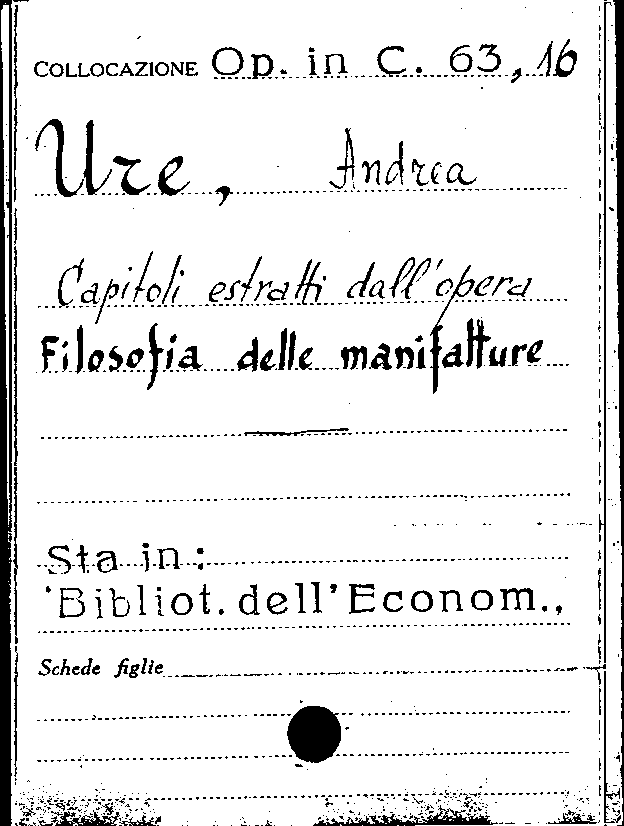 COLLOCAZIONE Op. in C. 63, 16
Ure, Andrea
Capitoli estratti dall'opera
Filosofia delle manifatture
Sta in:
'Bibliot. dell'Econom.,
Schede figlie